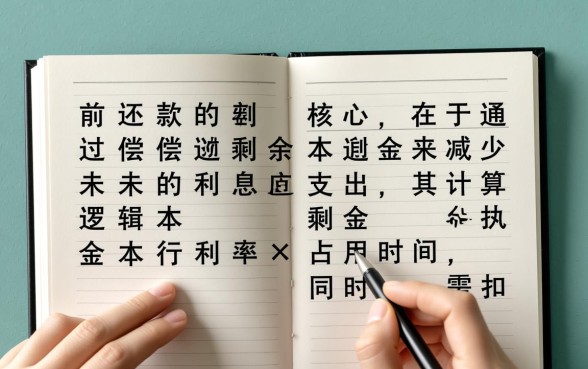 前还款的 核心，在于通
过偿偿剩余本金来减少
未未的利息支出，其计算
逻辑本 剩金 执
金本行利率×占用时间，
同时 需扣